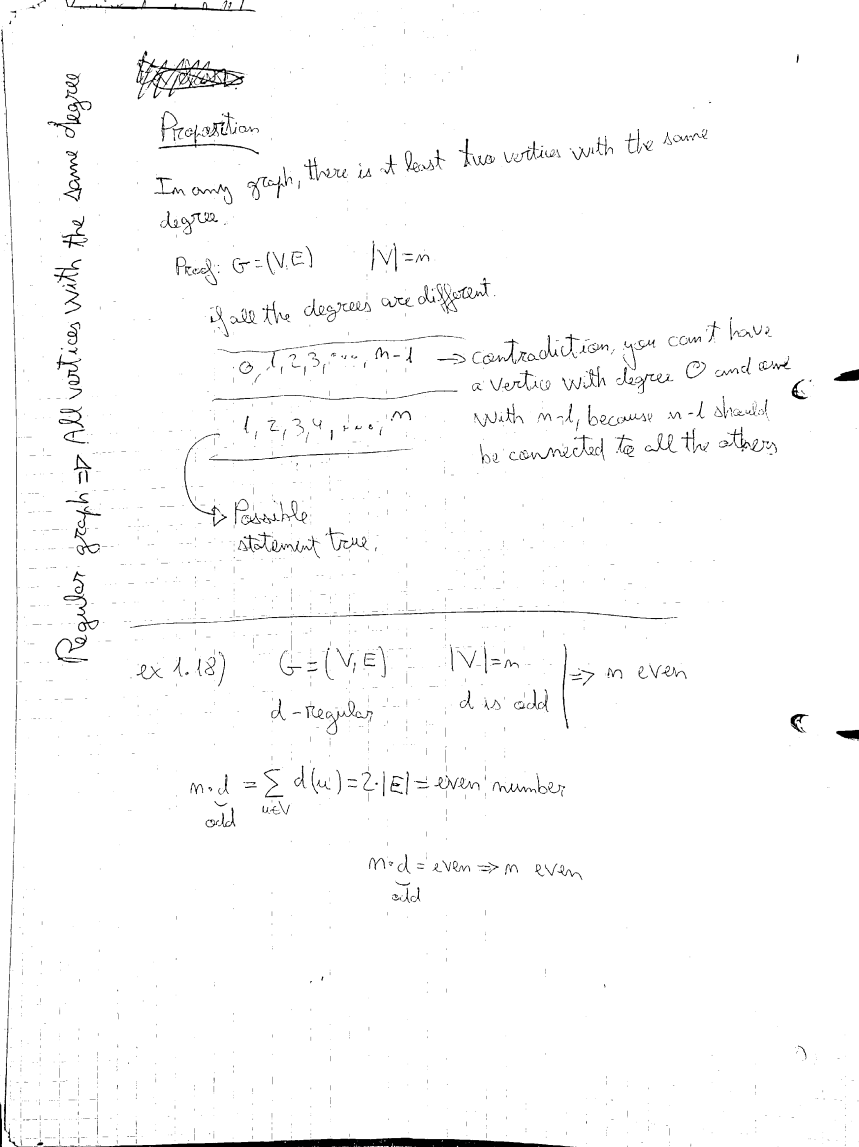 Regular graph => All vertices with the same degree
Proposition
In any graph, there is at least two vertices with the same
degree.
Proof: G=(V,E) |V|=n
if all the degrees are different.
0, 1, 2, 3, ..., n-1 → contradiction, you can't have
a vertice with degree 0 and one
with n-1, because n-1 should
be connected to all the others
1, 2, 3, 4, ..., n
Possible
statement true.
ex 1.18) G=(V,E) |V|=n => n even
d-regular d is odd
n·d = ∑ d(u) = 2·|E| = even number
odd u∈V
n·d = even => n even
odd